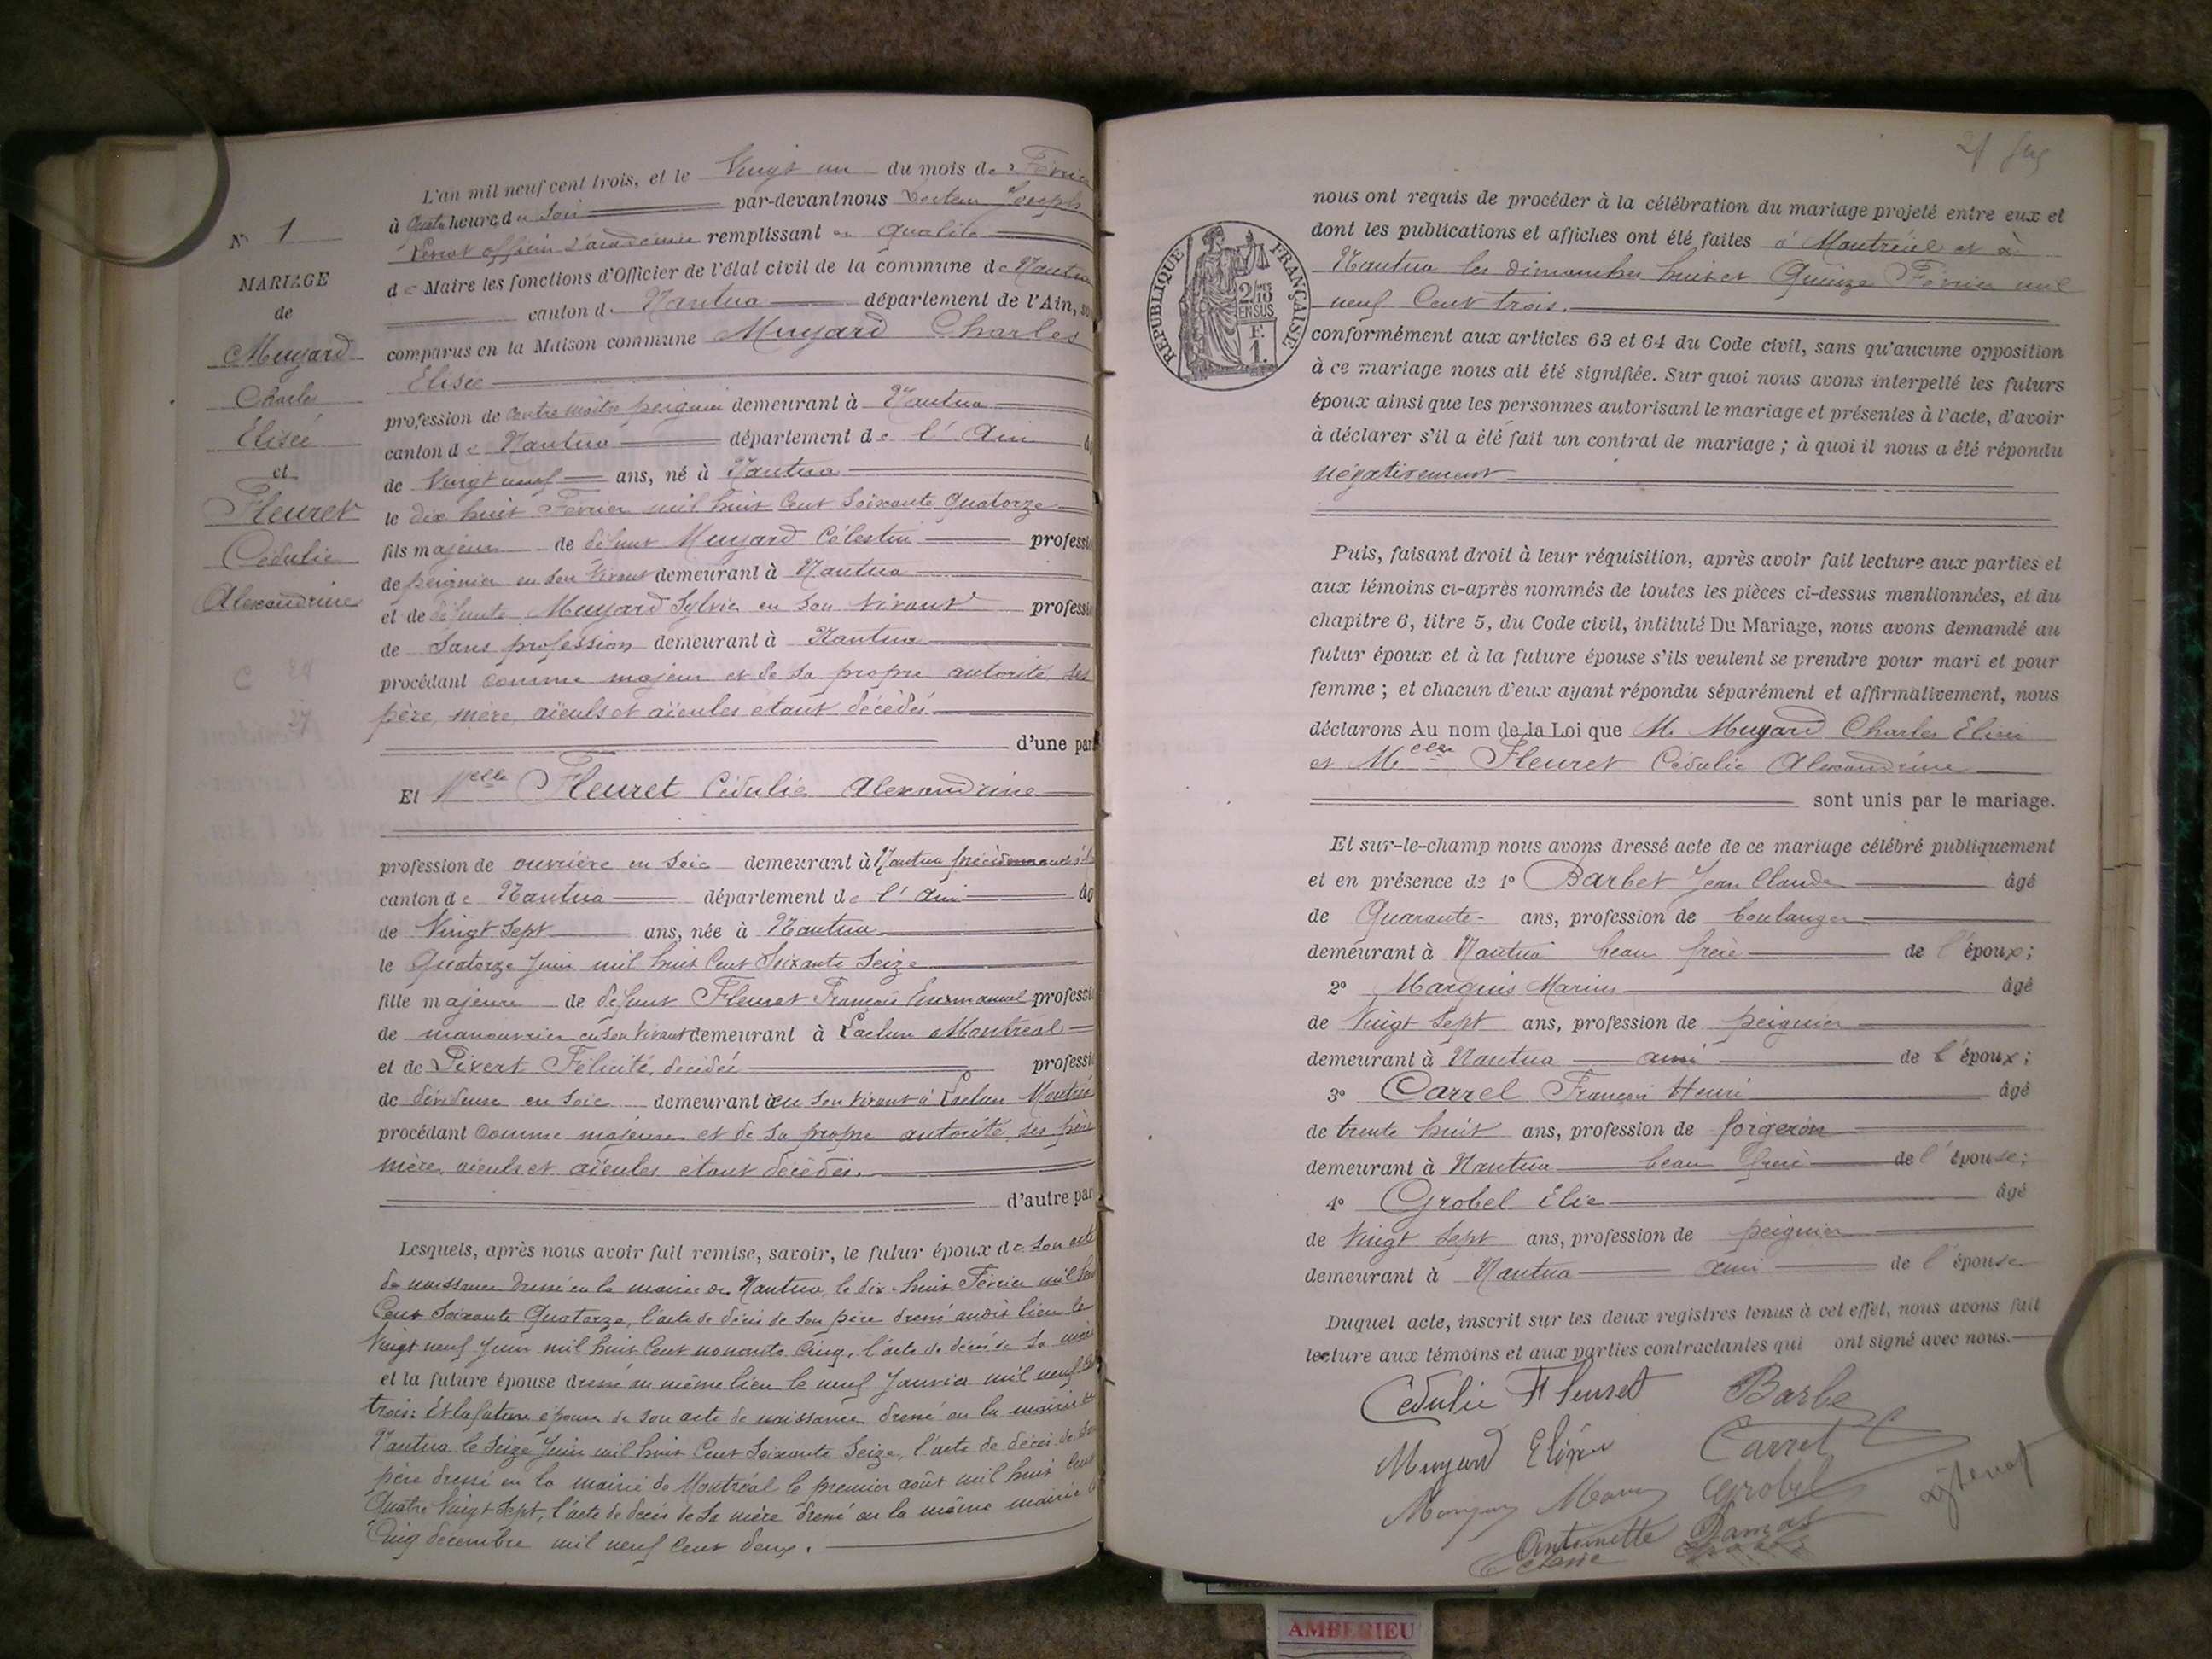 N° 1
MARIAGE
de
Muyard
Charles
Élisée
et
Fleuret
Cédulie
Alexandrine
L'an mil neuf cent trois, et le Vingt un du mois de Février
à quatre heures du Soir par-devant nous Docteur Joseph
officier d'académie remplissant en qualité
de Maire les fonctions d'Officier de l'état civil de la commune de Nantua
canton de Nantua département de l'Ain,
comparus en la Maison commune Muyard Charles
Elisée
profession de Contre maître peignier demeurant à Nantua
canton de Nantua département de l'Ain
de Vingt neuf ans, né à Nantua
le dix huit Février mil huit Cent Soixante Quatorze
fils majeur de défunt Muyard Célestin professi
de peignier en son vivant demeurant à Nantua
et de défunte Muyard Sylvie en son vivant professi
de Sans profession demeurant à Nantua
procédant comme majeur et de sa propre autorité ses
père, mère, aïeuls et aïeules étant décédés
d'une par
Et Melle Fleuret Cédulie Alexandrine
profession de ouvrière en soie demeurant à Nantua
canton de Nantua département de l'Ain âg
de Vingt Sept ans, née à Nantua
le Quatorze Juin mil huit Cent Soixante Seize
fille majeure de défunt Fleuret François Emmanuel professi
de manouvrier en son vivant demeurant à Laclun Montréal
et de Pivert Félicité, décédée professi
de dévideuse en soie demeurant en son vivant à Laclun Montréa
procédant comme majeure et de sa propre autorité ses père
mère, aïeuls et aïeules étant décédés.
d'autre par
Lesquels, après nous avoir fait remise, savoir, le futur époux de son acte
de naissance dressé en la mairie de Nantua, le dix-huit Février mil huit
Cent Soixante Quatorze, l'acte de décès de son père dressé audit lieu le
Vingt neuf Juin mil huit Cent nonante Cinq, l'acte de décès de sa mère
et la future épouse dressé au même lieu le neuf Janvier mil neuf
trois: Et la future épouse de son acte de naissance dressé en la mairie
Nantua le Seize Juin mil huit Cent Soixante Seize, l'acte de décès de son
père dressé en la mairie de Montréal le premier août mil huit Cent
Quatre Vingt Sept, l'acte de décès de sa mère dressé en la même mairie
Cinq décembre mil neuf Cent deux.
nous ont requis de procéder à la célébration du mariage projeté entre eux et
dont les publications et affiches ont été faites à Montréal et à
Nantua les dimanches huit et Quinze Février mil
neuf Cent trois.
RÉPUBLIQUE FRANÇAISE
2/10 EN SUS
F.
1.
conformément aux articles 63 et 64 du Code civil, sans qu'aucune opposition
à ce mariage nous ait été signifiée. Sur quoi nous avons interpellé les futurs
époux ainsi que les personnes autorisant le mariage et présentes à l'acte, d'avoir
à déclarer s'il a été fait un contrat de mariage ; à quoi il nous a été répondu
négativement
Puis, faisant droit à leur réquisition, après avoir fait lecture aux parties et
aux témoins ci-après nommés de toutes les pièces ci-dessus mentionnées, et du
chapitre 6, titre 5, du Code civil, intitulé Du Mariage, nous avons demandé au
futur époux et à la future épouse s'ils veulent se prendre pour mari et pour
femme ; et chacun d'eux ayant répondu séparément et affirmativement, nous
déclarons Au nom de la Loi que M. Muyard Charles Elisée
et Melle Fleuret Cédulie Alexandrine
sont unis par le mariage.
Et sur-le-champ nous avons dressé acte de ce mariage célébré publiquement
et en présence de 1° Barbet Jean Claude âgé
de Quarante ans, profession de boulanger
demeurant à Nantua beau frère de l'époux;
2° Marquis Marius âgé
de Vingt Sept ans, profession de peignier
demeurant à Nantua ami de l'époux;
3° Carrel François Henri âgé
de trente huit ans, profession de forgeron
demeurant à Nantua beau frère de l'épouse;
4° Grobel Élie âgé
de Vingt Sept ans, profession de peignier
demeurant à Nantua ami de l'épouse
Duquel acte, inscrit sur les deux registres tenus à cet effet, nous avons fait
lecture aux témoins et aux parties contractantes qui ont signé avec nous.
Cedulie Fleuret Barbe
Muyard Elisée Carrel
Grobel
Antoinette Damas
AMBERIEU